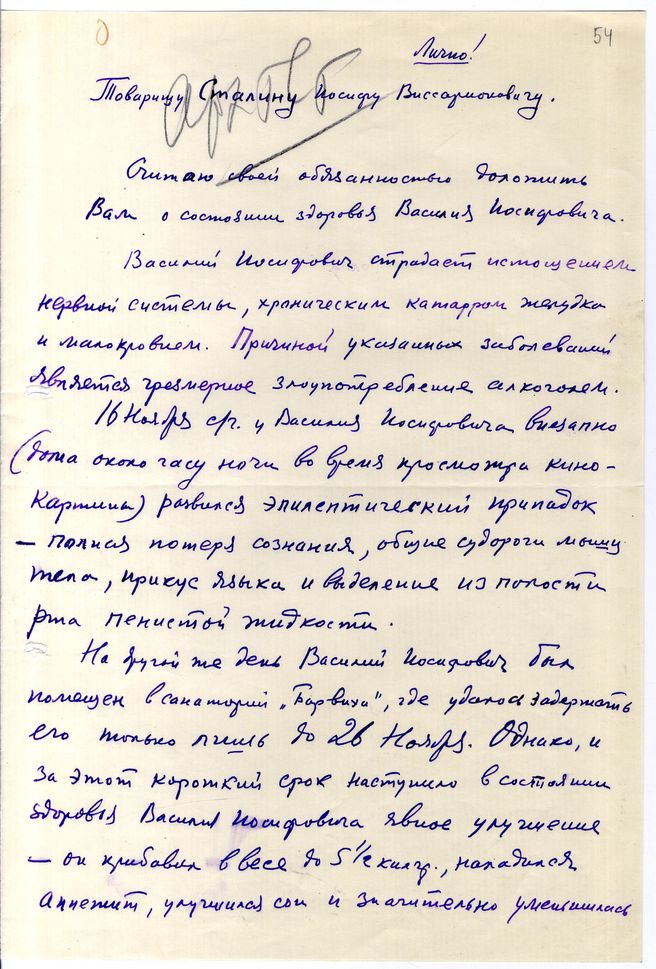 54
Лично!
Товарищу Сталину Иосифу Виссарионовичу.
Считаю своей обязанностью доложить
Вам о состоянии здоровья Василия Иосифовича.
Василий Иосифович страдает истощением
нервной системы, хроническим катарром желудка
и малокровием. Причиной указанных заболеваний
является чрезмерное злоупотребление алкоголем.
16 Ноября с/г. у Василия Иосифовича внезапно
(дома около часу ночи во время просмотра кино-
картины) развился эпилептический припадок
– полная потеря сознания, общие судороги мышц
тела, прикус языка и выделение из полости
рта пенистой жидкости.
На другой же день Василий Иосифович был
помещен в санаторий „Барвиха", где удалось задержать
его только лишь до 26 Ноября. Однако, и
за этот короткий срок наступило в состоянии
здоровья Василия Иосифовича явное улучшение
– он прибавил в весе до 5 1/2 килгр., наладился
аппетит, улучшился сон и значительно уменьшилась